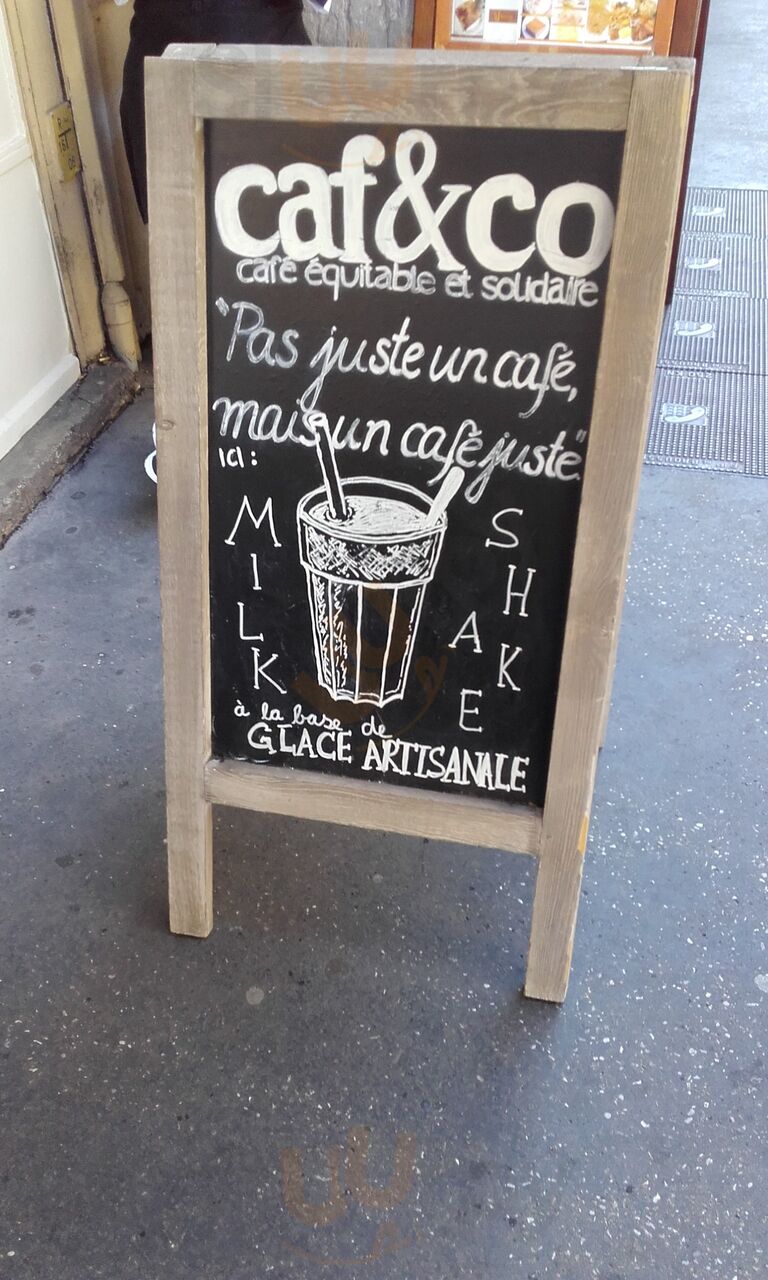 caf&co
café équitable et solidaire
"Pas juste un café,
mais un café juste"
ICI :
MILK
SHAKE
à la base de
GLACE ARTISANALE